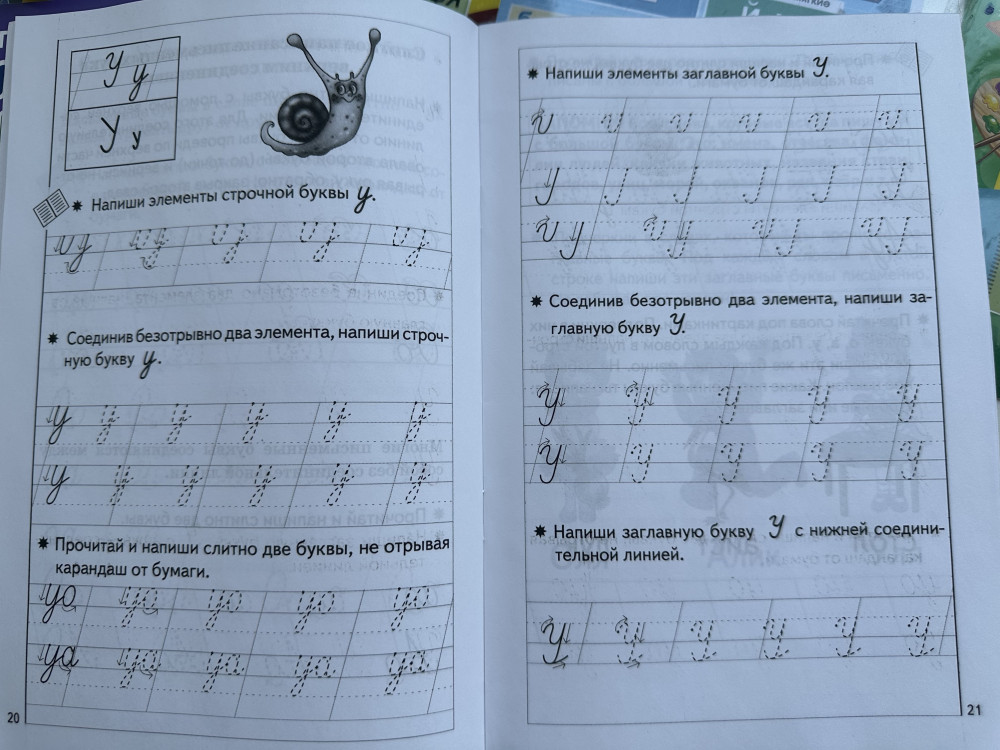 У у
У у
Напиши элементы строчной буквы у.
Соединив безотрывно два элемента, напиши строч-
ную букву у.
у у у у у
у у у у у
Прочитай и напиши слитно две буквы, не отрывая
карандаш от бумаги.
уо уо уо уо уо
уа уа уа уа уа
20
Напиши элементы заглавной буквы У.
Соединив безотрывно два элемента, напиши за-
главную букву У.
У У У У У
У У У У У
Напиши заглавную букву У с нижней соедини-
тельной линией.
У У У У У У
21